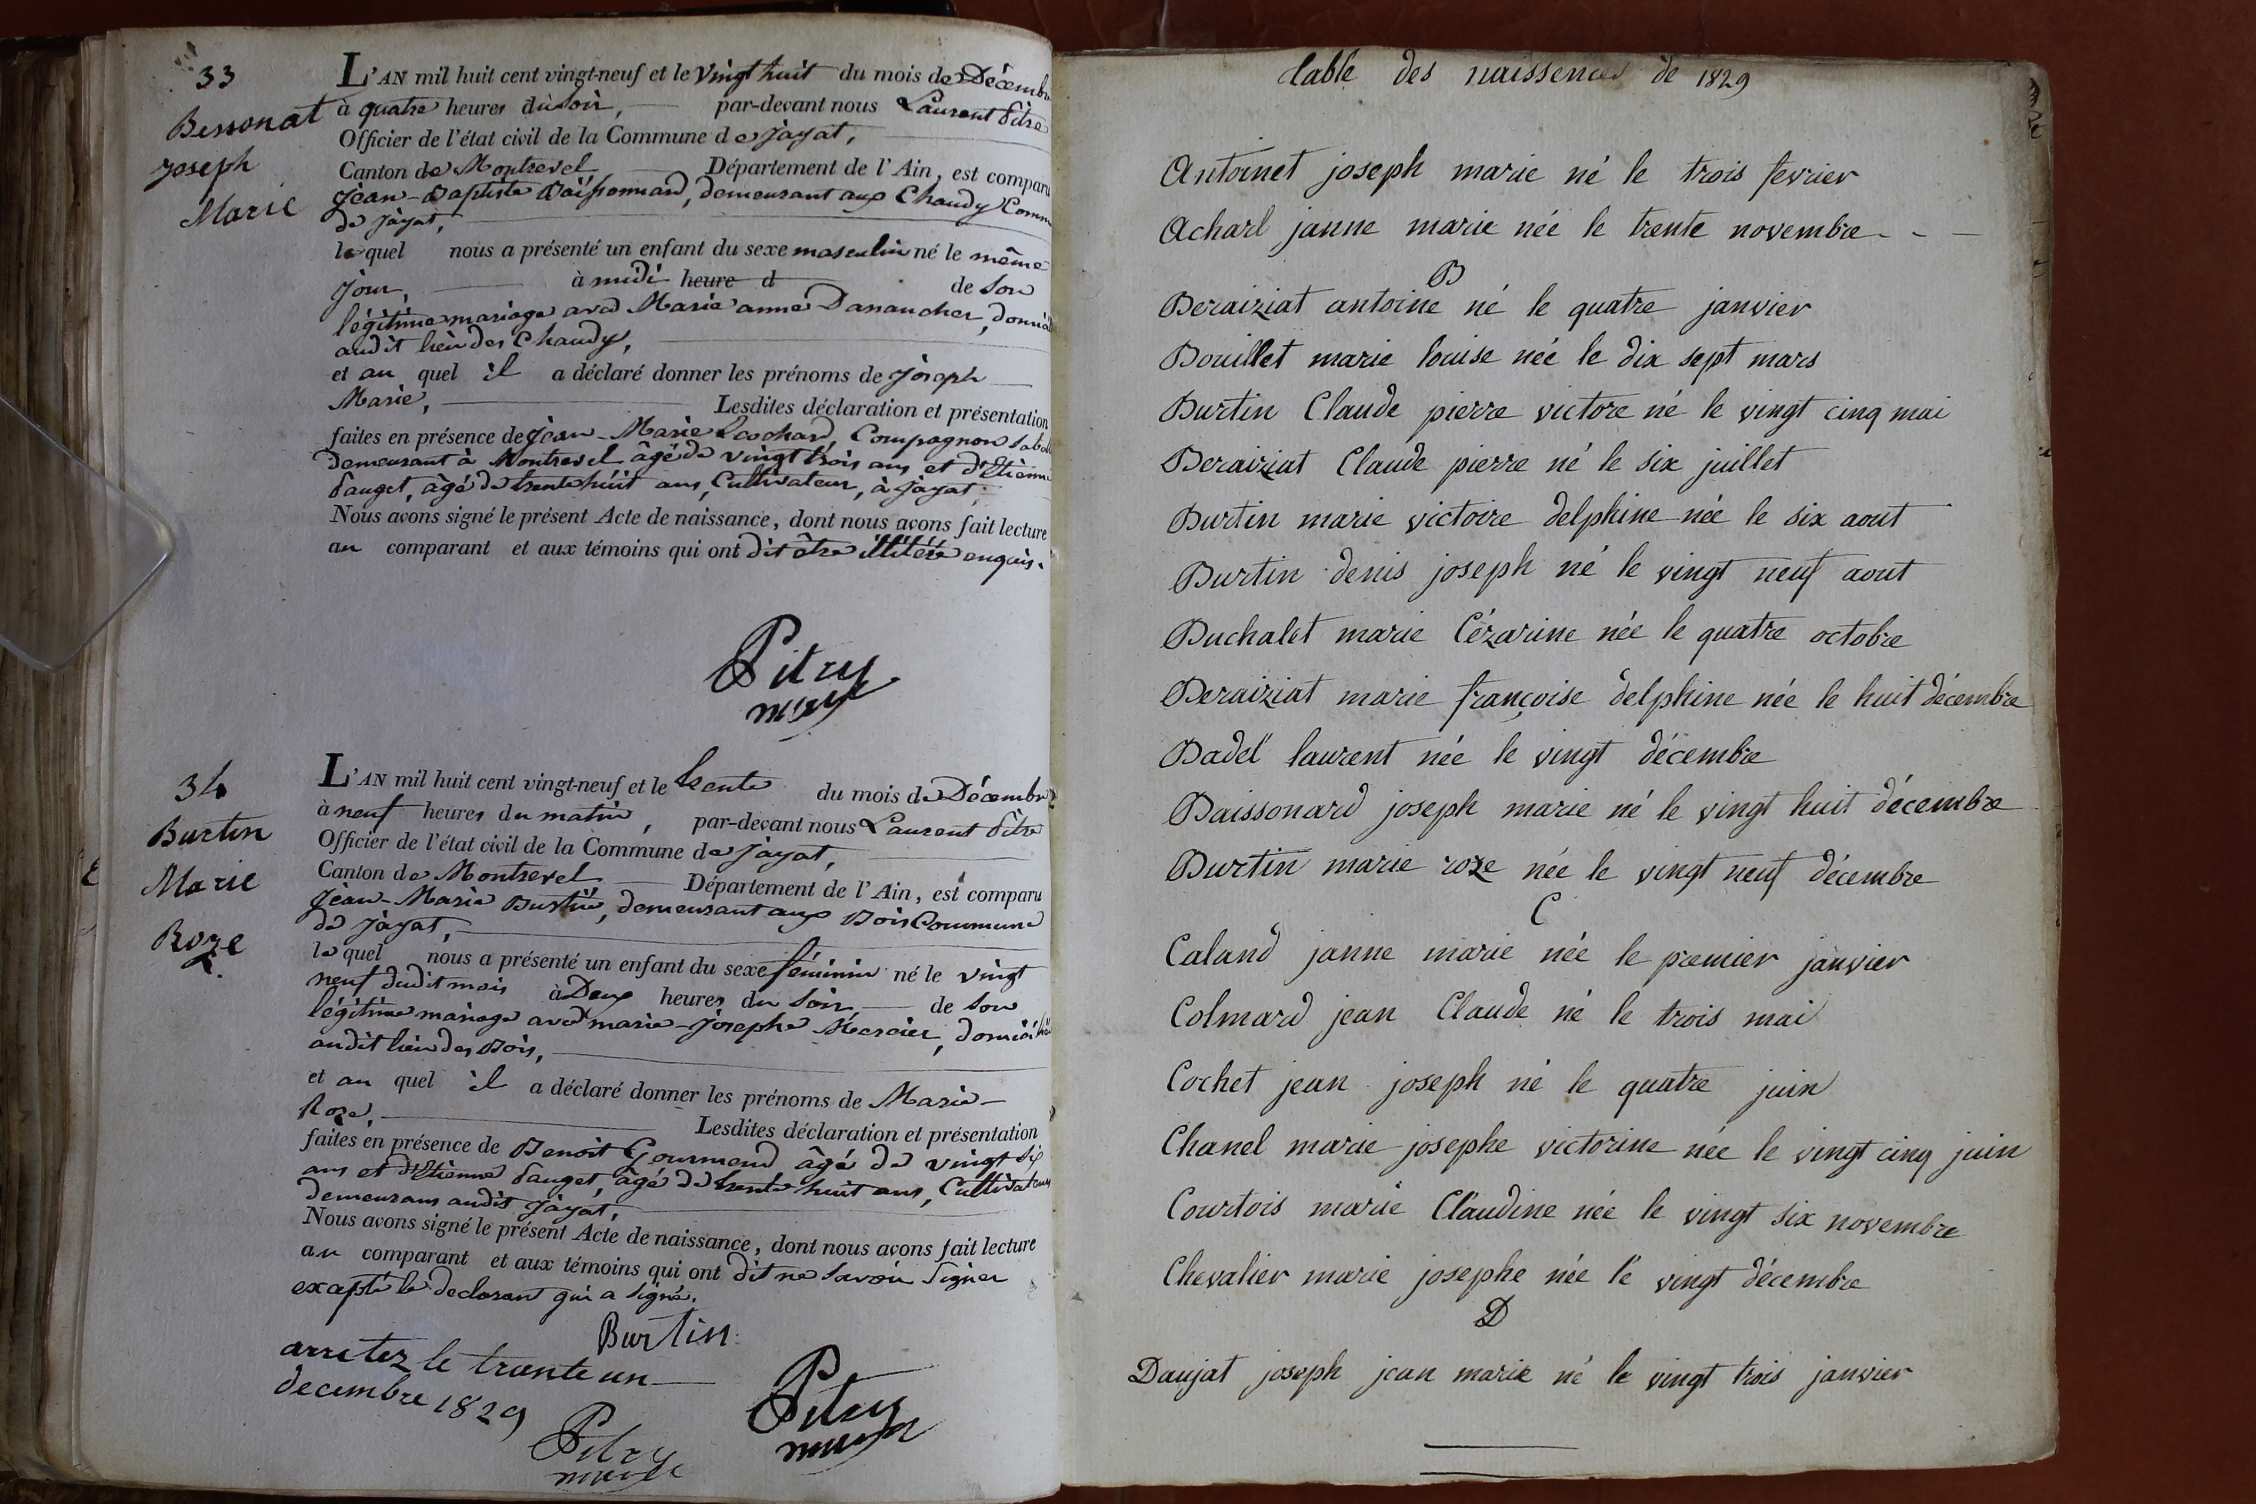 33
Bessonat
Joseph
Marie
L'AN mil huit cent vingt-neuf et le vingt huit du mois de Décembre
à quatre heures du soir, par-devant nous Laurent Pitre
Officier de l'état civil de la Commune de Jayat,
Canton de Montrevel Département de l'Ain, est comparu
Jean-Baptiste Baissonnard, demeurant aux Chaudy Comm
de Jayat,
lequel nous a présenté un enfant du sexe masculin né le même
jour, à midi heure d de son
légitime mariage avec Marie anne Danancher, domicil
audit lieu des Chaudy,
et au quel il a déclaré donner les prénoms de Joseph
Marie, Lesdites déclaration et présentation
faites en présence de Jean-Marie Lochard, Compagnon sabot
demeurant à Montrevel âgé de vingt trois ans et d'Etienne
Pauget, âgé de trente huit ans, Cultivateur, à Jayat,
Nous avons signé le présent Acte de naissance, dont nous avons fait lecture
au comparant et aux témoins qui ont dit être illitéré enquis.
Pitre
maire
34
Burtin
Marie
Roze
L'AN mil huit cent vingt-neuf et le trente du mois de Décembre
à neuf heures du matin, par-devant nous Laurent Pitre
Officier de l'état civil de la Commune de Jayat,
Canton de Montrevel Département de l'Ain, est comparu
Jean-Marie Burtin, demeurant aux Bois Commune
de Jayat,
lequel nous a présenté un enfant du sexe féminin né le vingt
neuf dudit mois à Deux heures du soir, de son
légitime mariage avec marie-Josephe Mercier, domicilié
audit lieu des Bois,
et au quel il a déclaré donner les prénoms de Marie-
Roze, Lesdites déclaration et présentation
faites en présence de Benoit Gourmend âgé de vingt six
ans et d'Etienne Pauget, âgé de trente huit ans, Cultivateurs
demeurans audit Jayat,
Nous avons signé le présent Acte de naissance, dont nous avons fait lecture
au comparant et aux témoins qui ont dit ne savoir signer
excepté le declarant qui a signé.
Burtin
arretez le trente un
decembre 1829
Pitre
maire
Pitre
maire
table des naissences de 1829
Antoinet joseph marie né le trois fevrier
Achard janne marie née le trente novembre - - -
B
Beraiziat antoine né le quatre janvier
Bouillet marie louise née le dix sept mars
Burtin Claude pierre victore né le vingt cinq mai
Beraiziat Claude pierre né le six juillet
Burtin marie victoire delphine née le six aout
Burtin denis joseph né le vingt neuf aout
Buchalet marie Cézarine née le quatre octobre
Beraiziat marie françoise delphine née le huit décembre
Badel laurent née le vingt décembre
Baissonard joseph marie né le vingt huit décembre
Burtin marie roze née le vingt neuf décembre
C
Caland janne marie née le premier janvier
Colmard jean Claude né le trois mai
Cochet jean joseph né le quatre juin
Chanel marie josephe victorine née le vingt cinq juin
Courtois marie Claudine née le vingt six novembre
Chevalier marie josephe née le vingt décembre
D
Daujat joseph jean marie né le vingt trois janvier